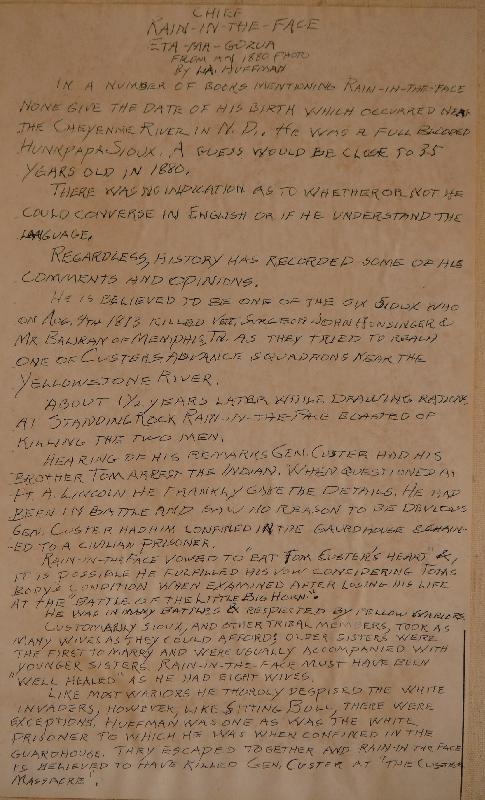 CHIEF
RAIN-IN-THE-FACE
ETA-MA-GOZUA
FROM AN 1880 PHOTO
BY LA. HUFFMAN
IN A NUMBER OF BOOKS MENTIONING RAIN-IN-THE-FACE
NONE GIVE THE DATE OF HIS BIRTH WHICH OCCURRED NEAR
THE CHEYENNE RIVER IN N.D., HE WAS A FULL BLOODED
HUNKPAPA SIOUX. A GUESS WOULD BE CLOSE TO 35
YEARS OLD IN 1880.
THERE WAS NO INDICATION AS TO WHETHER OR NOT HE
COULD CONVERSE IN ENGLISH OR IF HE UNDERSTAND THE
LANGUAGE.
REGARDLESS, HISTORY HAS RECORDED SOME OF HIS
COMMENTS AND OPINIONS.
HE IS BELIEVED TO BE ONE OF THE SIX SIOUX WHO
ON AUG. 4TH 1873 KILLED VET, SURGEON JOHN HONSINGER &
MR. BALIRAN OF MEMPHIS, TN. AS THEY TRIED TO REACH
ONE OF CUSTERS ADVANCE SQUADRONS NEAR THE
YELLOWSTONE RIVER.
ABOUT 1½ YEARS LATER WHILE DRAWING RATIONS
AT STANDING ROCK RAIN-IN-THE-FACE BOASTED OF
KILLING THE TWO MEN.
HEARING OF HIS REMARKS GEN. CUSTER HAD HIS
BROTHER TOM ARREST THE INDIAN. WHEN QUESTIONED AT
FT. A. LINCOLN HE FRANKLY GAVE THE DETAILS. HE HAD
BEEN IN BATTLE AND SAW NO REASON TO BE DEVIOUS
GEN. CUSTER HAD HIM CONFINED IN THE GAURDHOUSE & CHAIN-
-ED TO A CIVILIAN PRISONER.
RAIN-IN-THE-FACE VOWED TO "EAT TOM CUSTER'S HEART" &,
IT IS POSSIBLE HE FULFILLED HIS VOW CONSIDERING TOMS
BODY'S CONDITION WHEN EXAMINED AFTER LOSING HIS LIFE
AT THE "BATTLE OF THE LITTLE BIG HORN".
HE WAS IN MANY BATTLES & RESPECTED BY FELLOW WARIORS.
CUSTOMARILY SIOUX, AND OTHER TRIBAL MEMBERS, TOOK AS
MANY WIVES AS THEY COULD AFFORD; OLDER SISTERS WERE
THE FIRST TO MARRY AND WERE USUALLY ACCOMPANIED WITH
YOUNGER SISTERS. RAIN-IN-THE-FACE MUST HAVE BEEN
"WELL HEALED" AS HE HAD EIGHT WIVES.
LIKE MOST WARIORS HE THOROLY DESPISED THE WHITE
INVADERS, HOWEVER, LIKE SITTING BULL, THERE WERE
EXCEPTIONS. HUFFMAN WAS ONE AS WAS THE WHITE
PRISONER TO WHICH HE WAS WHEN CONFINED IN THE
GUARDHOUSE. THEY ESCAPED TOGETHER AND RAIN-IN THE FACE
IS BELIEVED TO HAVE KILLED GEN. CUSTER AT "THE CUSTER
MASSACRE".